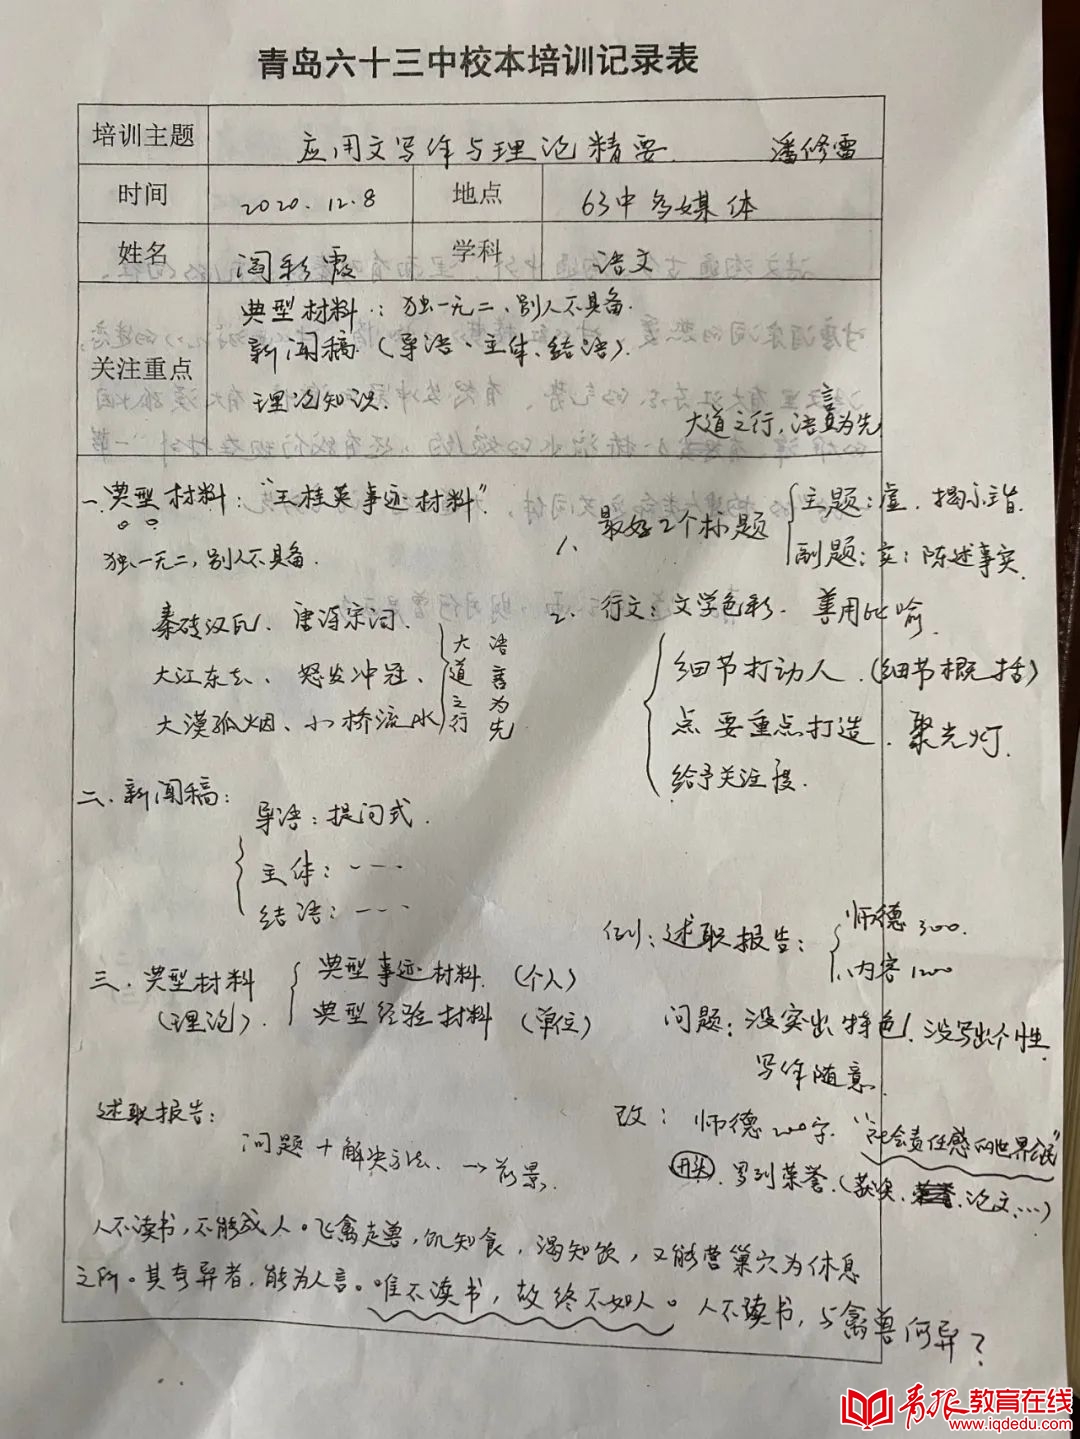 青岛六十三中校本培训记录表
培训主题 应用文写作与理论精要. 潘修雷
时间 2020.12.8 地点 63中多媒体
姓名 阎彩霞 学科 语文
关注重点
典型材料：独一无二、别人不具备.
新闻稿（导语、主体、结语）.
理论知识.
大道之行，语言为先
一.典型材料："王桂英事迹材料".
独一无二，别人不具备.
秦砖汉瓦、唐诗宋词.
大江东去、怒发冲冠、
大漠孤烟、小桥流水
大道之行
语言为先
1、最好2个标题
主题：虚．揭示主旨.
副题：实：陈述事实.
2、行文：文学色彩．善用比喻.
细节打动人．（细节概括）
点 要重点打造．聚光灯.
给予关注度.
二、新闻稿：
导语：提问式.
主体：----
结语：----
三.典型材料
（理论）.
典型事迹材料.（个人）
典型经验材料（单位）
例：述职报告：
师德300.
内容1200
问题：没突出特色！没写出个性.
写作随意.
述职报告：
问题＋解决方法.→前景.
改：师德200字."社会责任感的世界公民"
开头.罗列荣誉.（获奖、论文、...）
人不读书，不能成人。飞禽走兽，饥知食，渴知饮，又能营巢穴为休息
之所。其奇异者，能为人言。唯不读书，故终不如人。人不读书，与禽兽何异？
青报教育在线
www.iqdedu.com